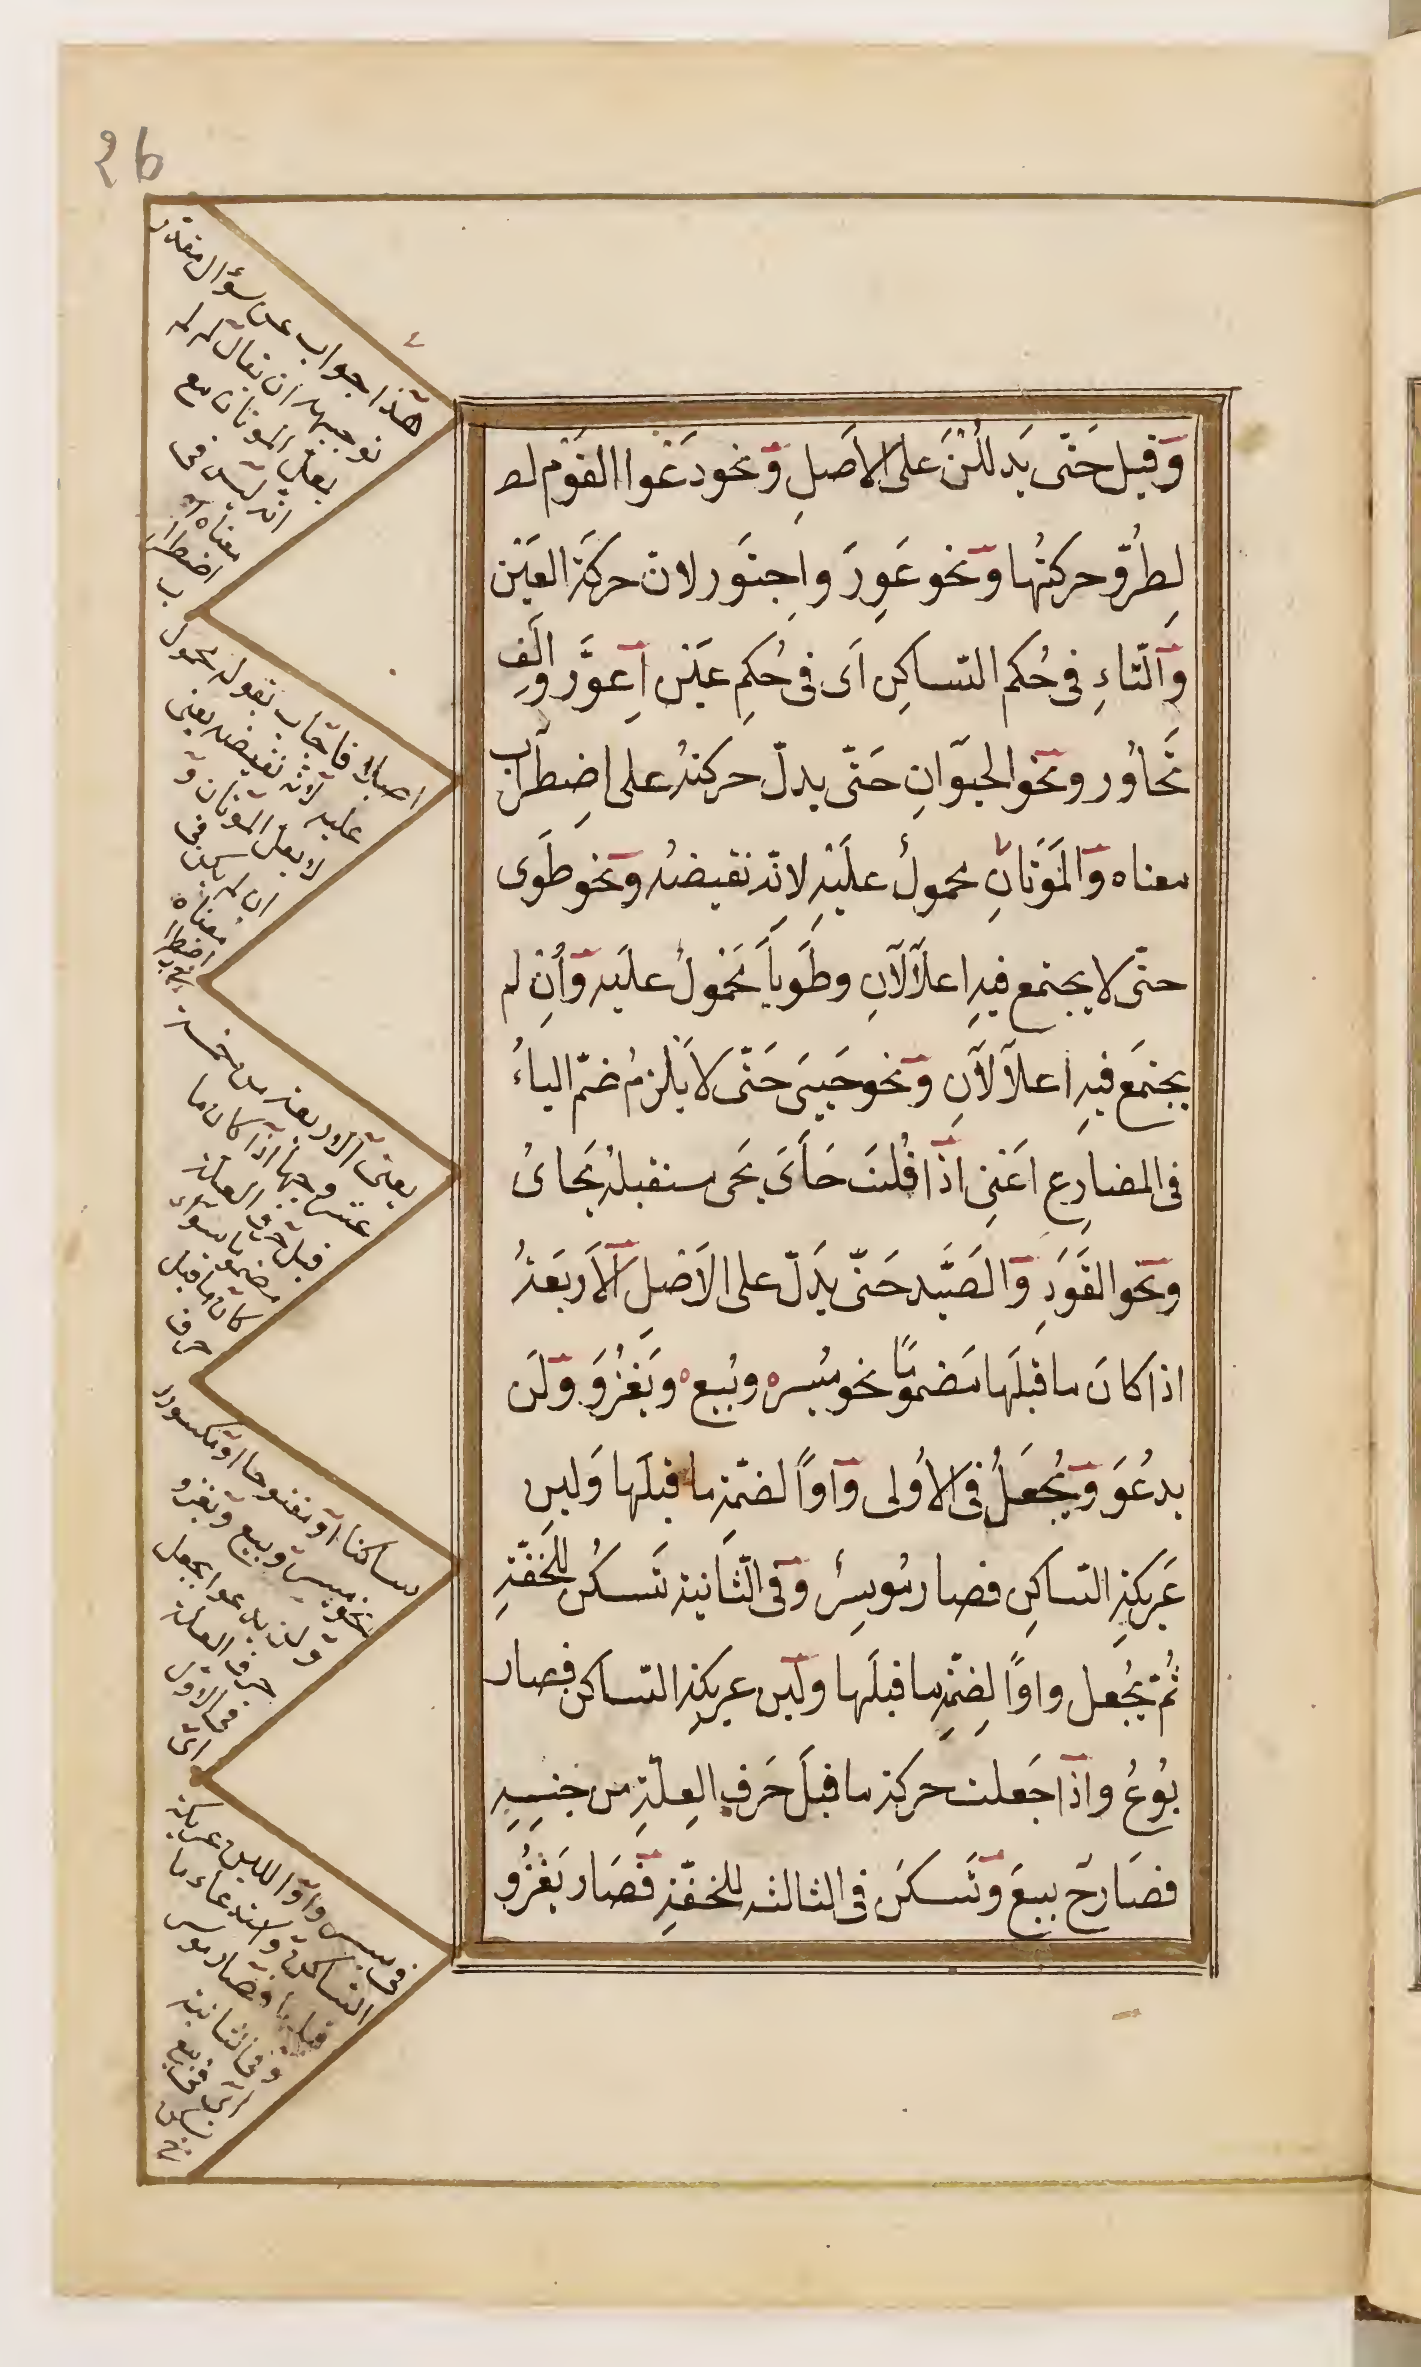 وَقيل حَتّى يَدللُنَ على الاصَلِ وَنحود دَعَوا القَوْم لط
لِطُرُوِّ حركتُها وَنحو عَوِرَ واِجتَوَر لانّ حركَة العَيْن
وَالتّاءِ فى حُكم السّاكِن اَى فى حُكمِ عَيْن اِعوَرَّ وَاَلِفِ
تَجَاوُر وَنحو الحيوَانِ حَتّى يدلّ حركتهُ على اضِطرَابِ
معناه وَالمَوَتَانِ محمولُ علَيْهِ لانّه نقيضهُ وَنحو طَوى
حتّى لا يجتمع فيهِ اعلَالَانِ وطَوياَ مَحْمولُ علَيه وَاُنِ لم
يجتمَع فيهِ اعلَالاَنِ وَنحو حَيِىَ حَتّى لا يَلْزمُ ضمّ الياءُ
فى المضارِع اَعنِى اذَا قُلتَ حَاىَ يَحى مستقبلهُ يَحاىُ
وَنحو القَوَدِ وَالصَيَد حَتّى يدَلّ على الاَصْل الاَربَعةُ
اذا كانَ ما قبلَها مَضمومًا نحو مُيسر وبُيع ويَغْزُوَ وَلَن
يدعُوَ وَيُجعَلُ فى الاُولى وَاوًا لضمّةِ ما قبلَها وَلينِ
عَريكةِ السّاكِن فصار مُوسِرُ وَفى الثّانية تَسكُن للخفّةِ
ثُمّ يجُعل واوًا لِضمّةِ ما قبلَها ولَين عريكةِ السّاكن فصار
بُوعُ واذَا جَعلت حركة ما قبلَ حَرفِ العِلّةِ من جِنسِهِ
فصَار ح بيعَ وَتَسكنَ فى الثالثه للخفّةِ فصَار يَغْزُو
هذا جواب عن سؤال مقدر
توجيهه ان يقال لم لم
يعلّ الموتان مع
انّه ليس فى
معناه
اضطرا
ب
اصلا فاجاب بقوله محمول
عليه لانّه نقيضه يعنى
لا يعلّ الموتان و
ان لم يكن فى
معناه
اضطرا
يعنى الاربعة من خمسة
عشر وجها اذا كان ما
قبل حرف العلة
مضموما سواء
كان ما قبل
حرف
ساكنا او مفتوحا او مكسورا
نحو ميسر وبيع ويغزو
ولن يدعوا يجعل
حرف العلة
فى الاوّل
اى
فى ميسر واوا للين عريكة
السّاكن واستدعاء ما
قبلها فصار موسر
وفى الثانية
اى فى بيع